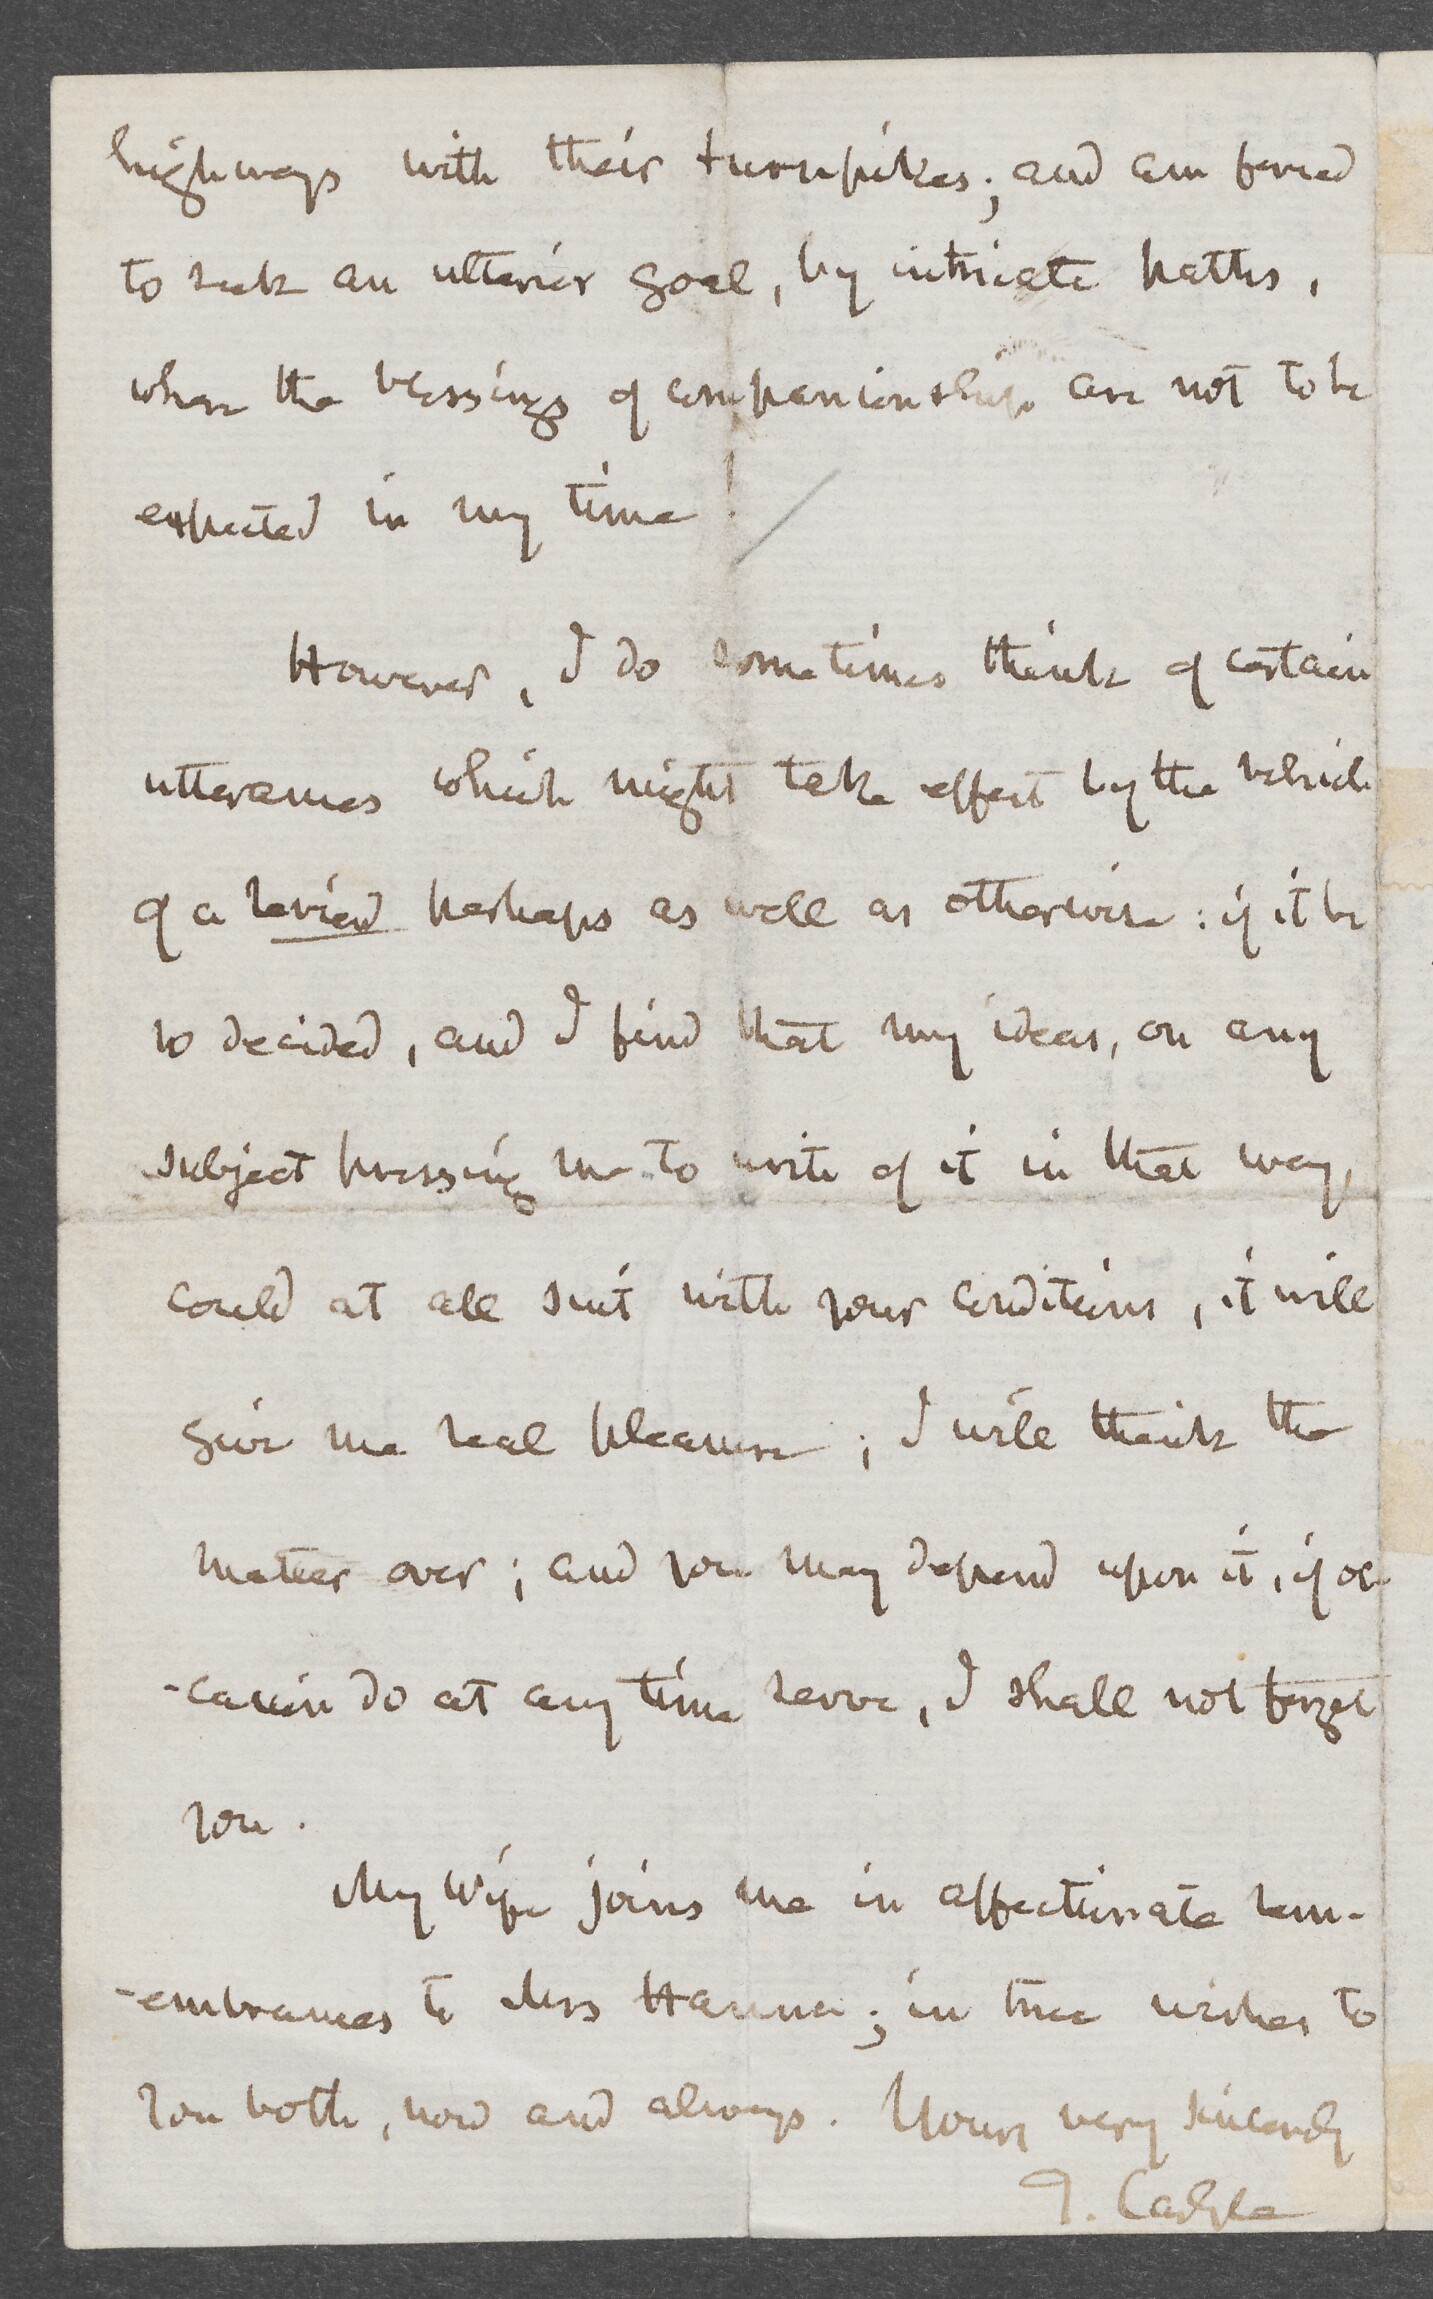 highways with their turnpikes; and am forced
to seek an ulterior goal, by intricate paths,
where the blessings of companionship are not to be
expected in my time!
However, I do sometimes think of certain
utterances which might take effect by the vehicle
of a review perhaps as well as otherwise: if it be
so decided, and I find that my ideas, on any
subject pressing me to write of it in that way,
could at all suit with your conditions, it will
give me real pleasure; I will think the
matter over; and you may depend upon it, if oc-
-casion do at any time serve, I shall not forget
you.
My Wife joins me in affectionate rem-
-embrances to Mrs Hanna; in true wishes to
you both, now and always. Yours very sincerely
T. Carlyle